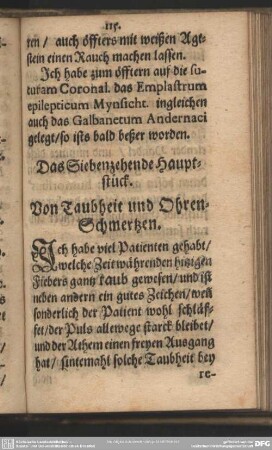 115.
ren/ auch öffters mit weißen Agt-
stein einen Rauch machen lassen.
Ich habe zum öfftern auf die su-
turam Coronal. das Emplastrum
epilepticum Mynsicht. ingleichen
auch das Galbanetum Andernaci
gelegt/ so ists bald beßer worden.
Das Siebenzehende Haupt-
stück.
Von Taubheit und Ohren-
Schmertzen.
Ich habe viel Patienten gehabt/
welche Zeit währenden hitzigen
Fiebers gantz taub gewesen/ und ist
neben andern ein gutes Zeichen/ weñ
sonderlich der Patient wohl schläf-
fet/ der Puls allewege starck bleibet/
und der Athem einen freyen Ausgang
hat/ sintemahl solche Taubheit bey
re-
DFG